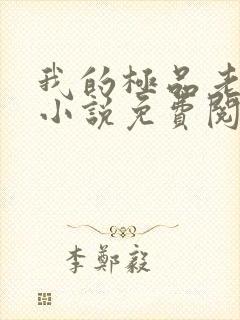 我的極品老
小說免費閱
李鄭毅